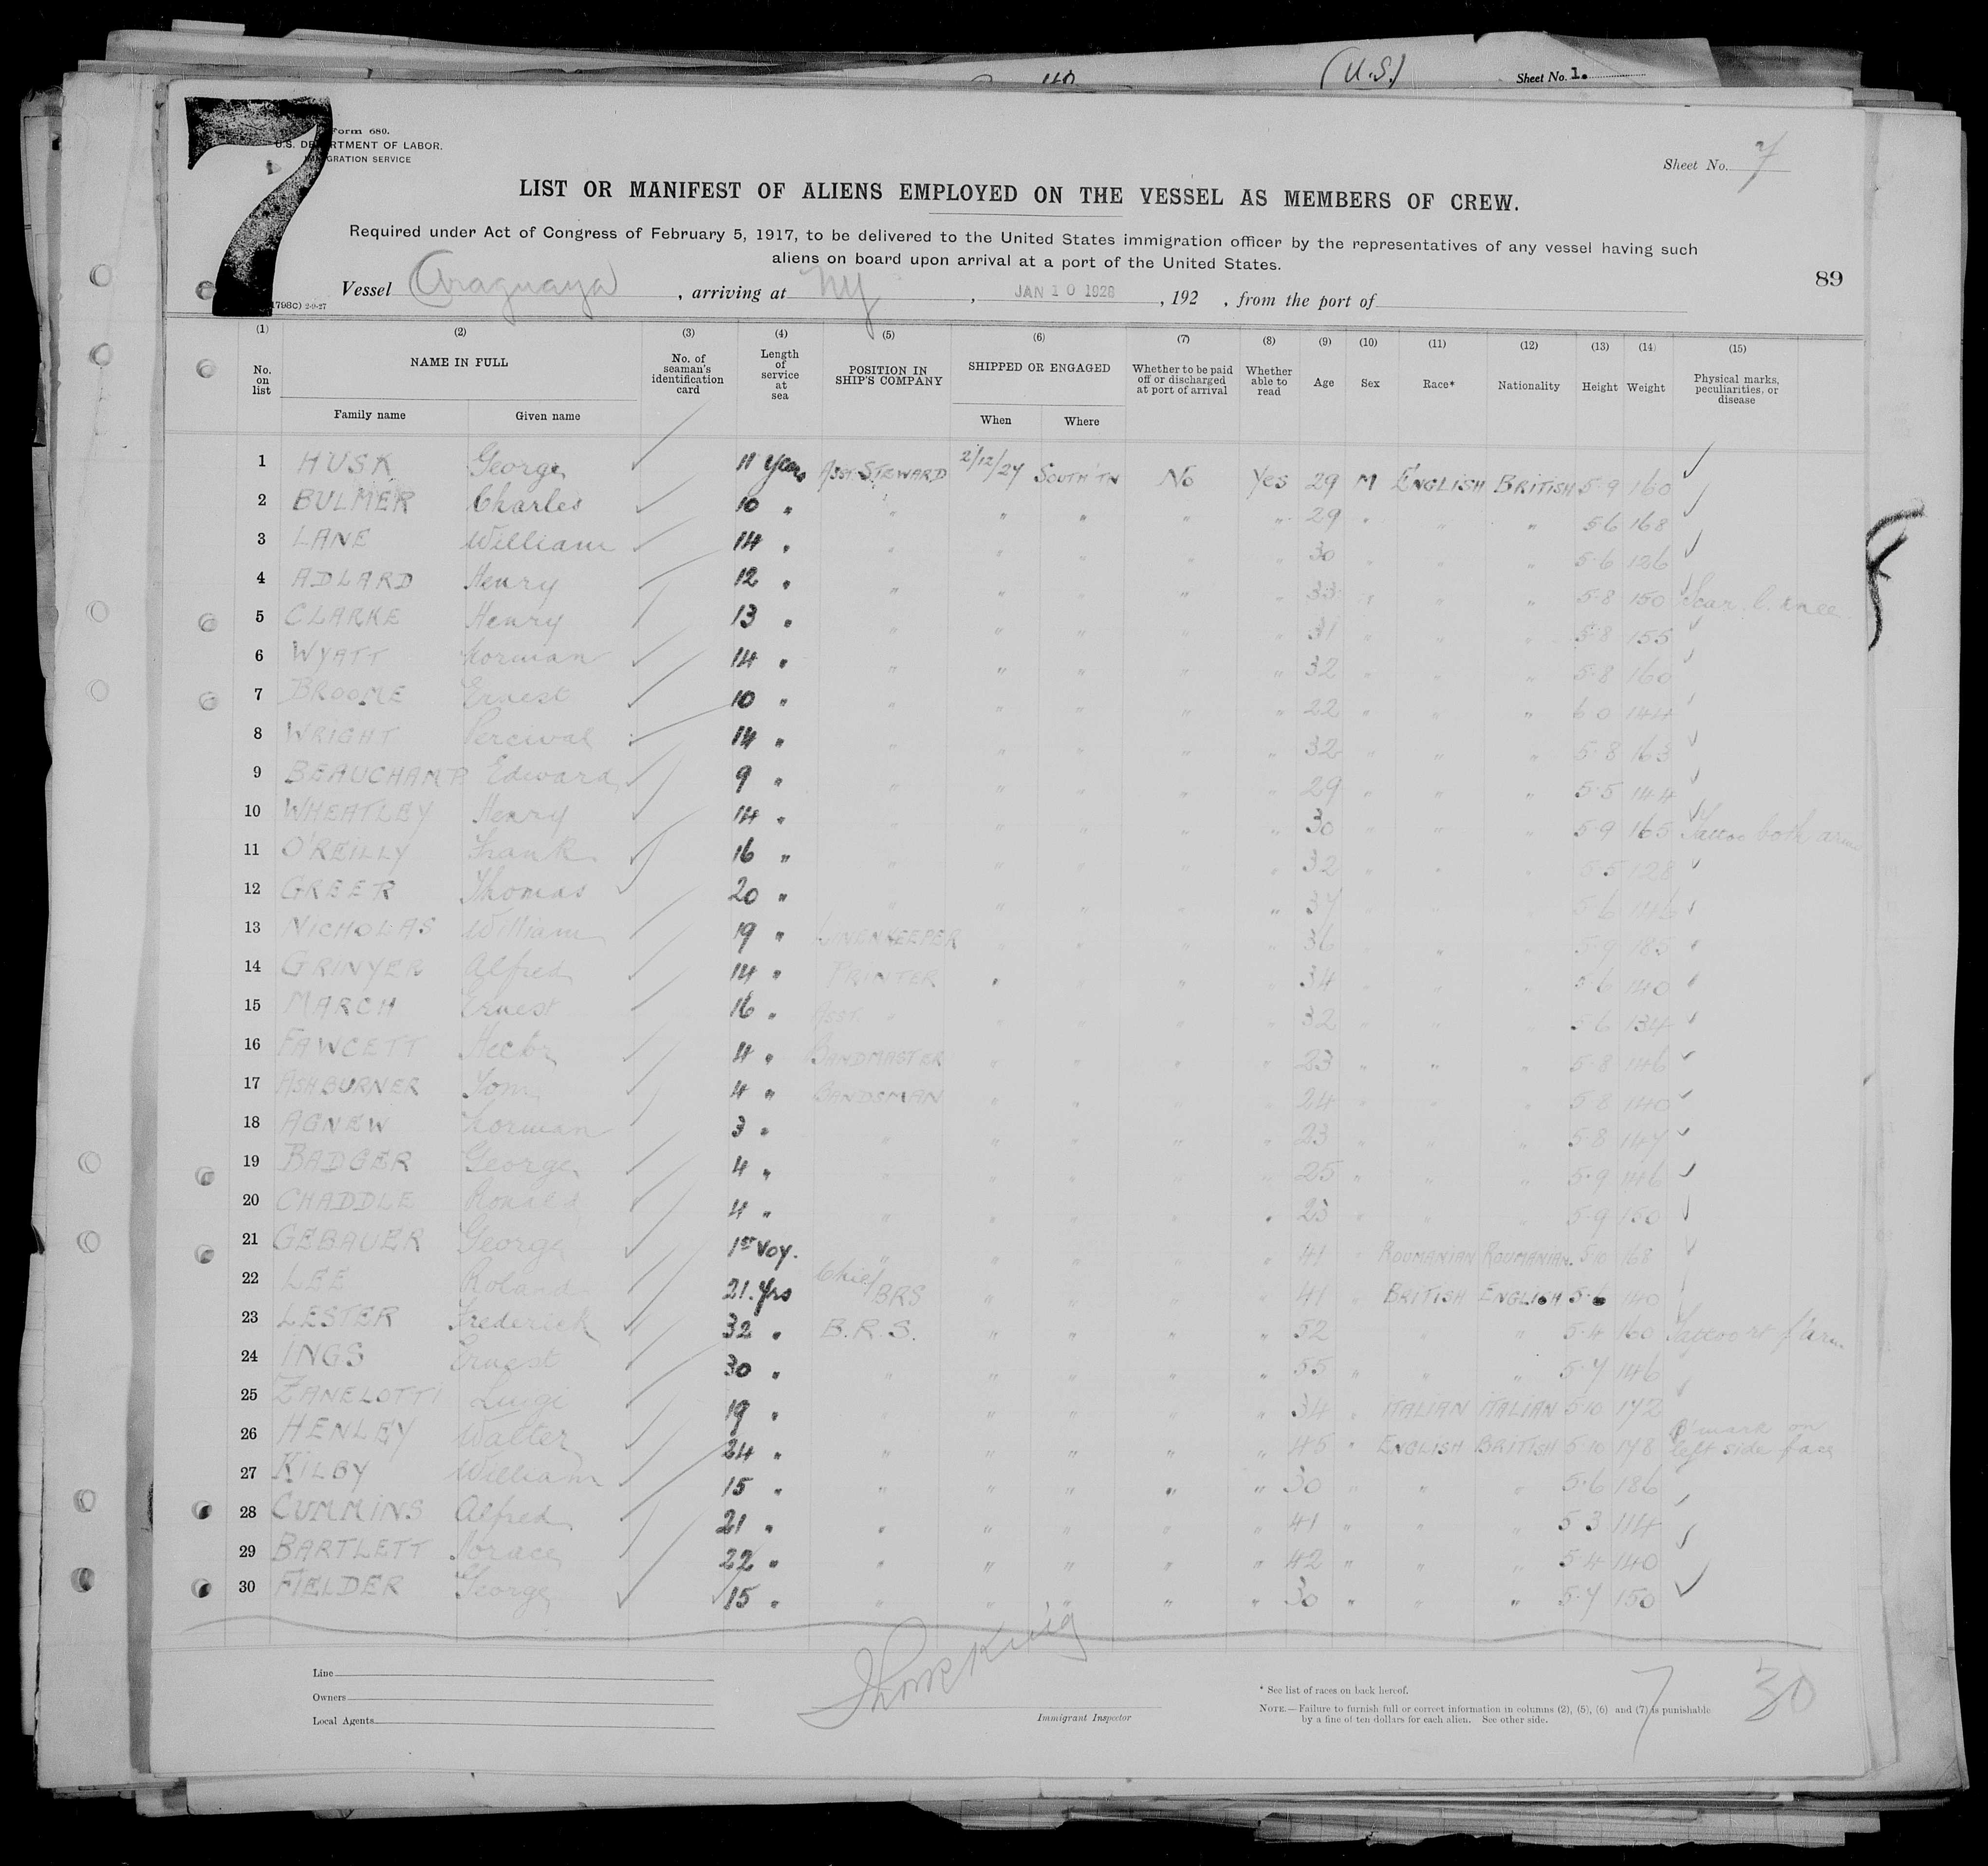 (U.S.) Sheet No. 1.
7
Form 680.
U.S. DEPARTMENT OF LABOR.
IMMIGRATION SERVICE
Sheet No. 7
LIST OR MANIFEST OF ALIENS EMPLOYED ON THE VESSEL AS MEMBERS OF CREW.
Required under Act of Congress of February 5, 1917, to be delivered to the United States immigration officer by the representatives of any vessel having such
aliens on board upon arrival at a port of the United States.
89
Vessel Araguaya, arriving at NY, JAN 10 1928, 192 , from the port of
(1) (2) (3) (4) (5) (6) (7) (8) (9) (10) (11) (12) (13) (14) (15)
No. on list NAME IN FULL No. of seaman's identification card Length of service at sea POSITION IN SHIP'S COMPANY SHIPPED OR ENGAGED Whether to be paid off or discharged at port of arrival Whether able to read Age Sex Race* Nationality Height Weight Physical marks, peculiarities, or disease
Family name Given name When Where
1 HUSK George 11 years Asst. STEWARD 2/12/27 SOUTH'TN No Yes 29 M ENGLISH BRITISH 5-9 160
2 BULMER Charles 10 " " " " " " 29 " " " 5-6 168
3 LANE William 14 " " " " " " 30 " " " 5-6 126
4 ADLARD Henry 12 " " " " " " 33 " " " 5-8 150 Scar l. knee
5 CLARKE Henry 13 " " " " " " 31 " " " 5-8 155
6 WYATT Norman 14 " " " " " " 32 " " " 5-8 160
7 BROOME Ernest 10 " " " " " " 22 " " " 6 0 144
8 WRIGHT Percival 14 " " " " " " 32 " " " 5-8 163
9 BEAUCHAMP Edward 9 " " " " " " 29 " " " 5-5 144
10 WHEATLEY Henry 14 " " " " " " 30 " " " 5-9 165 Tattoo both arms
11 O'REILLY Frank 16 " " " " " " 32 " " " 5-5 128
12 GREER Thomas 20 " " " " " " 37 " " " 5-6 146
13 NICHOLAS William 19 " LINENKEEPER " " " " 36 " " " 5-9 185
14 GRINYER Alfred 14 " PRINTER " " " " 34 " " " 5-6 140
15 MARCH Ernest 16 " ASST. " " " " " 32 " " " 5-6 134
16 FAWCETT Hector 4 " BANDMASTER " " " " 23 " " " 5-8 146
17 ASHBURNER Tom 4 " BANDSMAN " " " " 24 " " " 5-8 140
18 AGNEW Norman 3 " " " " " " 23 " " " 5-8 147
19 BADGER George 4 " " " " " " 25 " " " 5-9 146
20 CHADDLE Ronald 4 " " " " " " 23 " " " 5-9 150
21 GEBAUER George 1st voy. " " " " " 41 " ROUMANIAN ROUMANIAN 5-10 168
22 LEE Roland 21 yrs Chief BRS " " " " 41 " BRITISH ENGLISH 140
23 LESTER Frederick 32 " B.R.S. " " " " 52 " " 5-4 160 Tattoo rt f'arm
24 INGS Ernest 30 " " " " " " 55 " " " 5-7 146
25 ZANELOTTI Luigi 19 " " " " " " 34 " ITALIAN ITALIAN 5-10 172
26 HENLEY Walter 24 " " " " " " 45 " ENGLISH BRITISH 5-10 178 B'mark on left side face
27 KILBY William 15 " " " " " " 30 " " " 5-6 186
28 CUMMINS Alfred 21 " " " " " " 41 " " " 5 3 114
29 BARTLETT Horace 22 " " " " " " 42 " " " 5-4 140
30 FIELDER George 15 " " " " " " 30 " " " 5-7 150
Line
Owners
Local Agents
Immigrant Inspector
* See list of races on back hereof.
NOTE.—Failure to furnish full or correct information in columns (2), (5), (6) and (7) is punishable
by a fine of ten dollars for each alien. See other side.
7 30